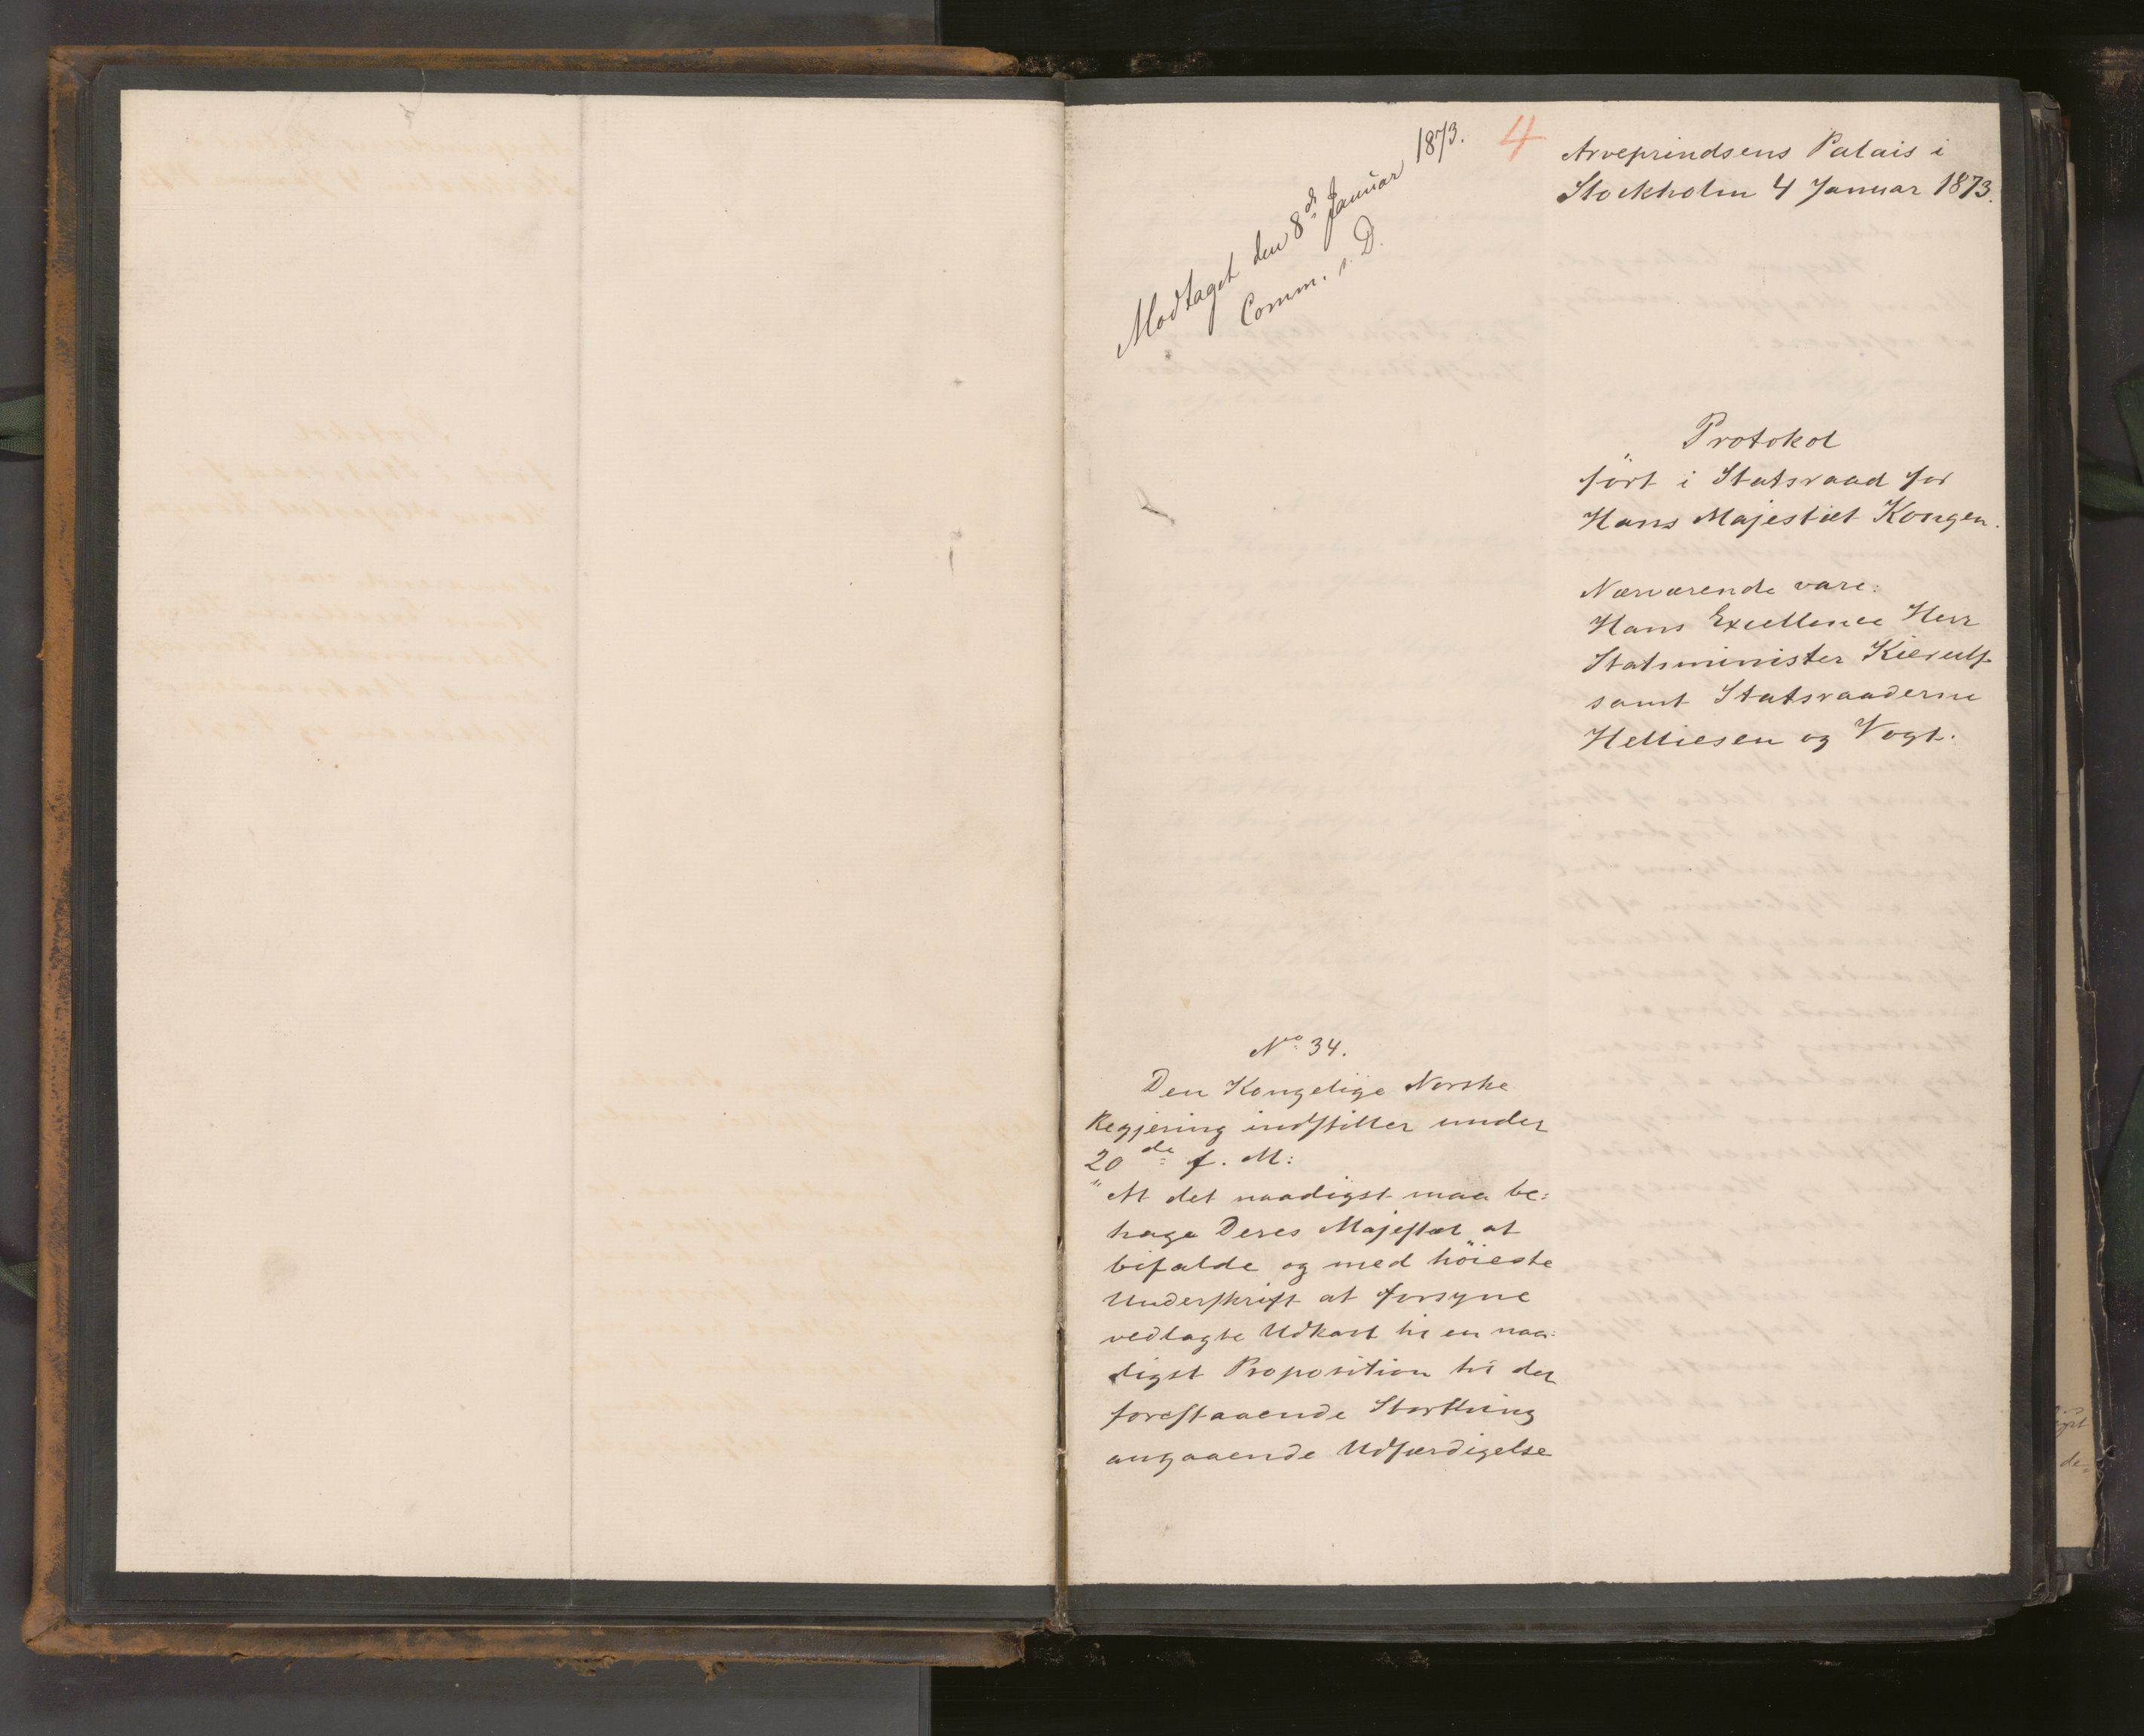 Modtaget den 8de Januar 1873.
Comm. v. D.
4
Arveprindsens Palais i
Stockholm 4 Januar 1873.
Protokol
ført i Statsraad for
Hans Majestæt Kongen.
Nærværende vare:
Hans Excellence Herr
Statsminister Kierulf
samt Statsraaderne
Helliesen og Vogt.
No 34.
Den Kongelige Norske
Regjering indstiller under
20de f. M:
"At det naadigst maa be:
hage Deres Majestæt at
bifalde og med höieste
Underskrift at forsyne
vedlagte Udkast til en naa:
digst Proposition til det
forestaaende Storthing
angaaende Udfærdigelse